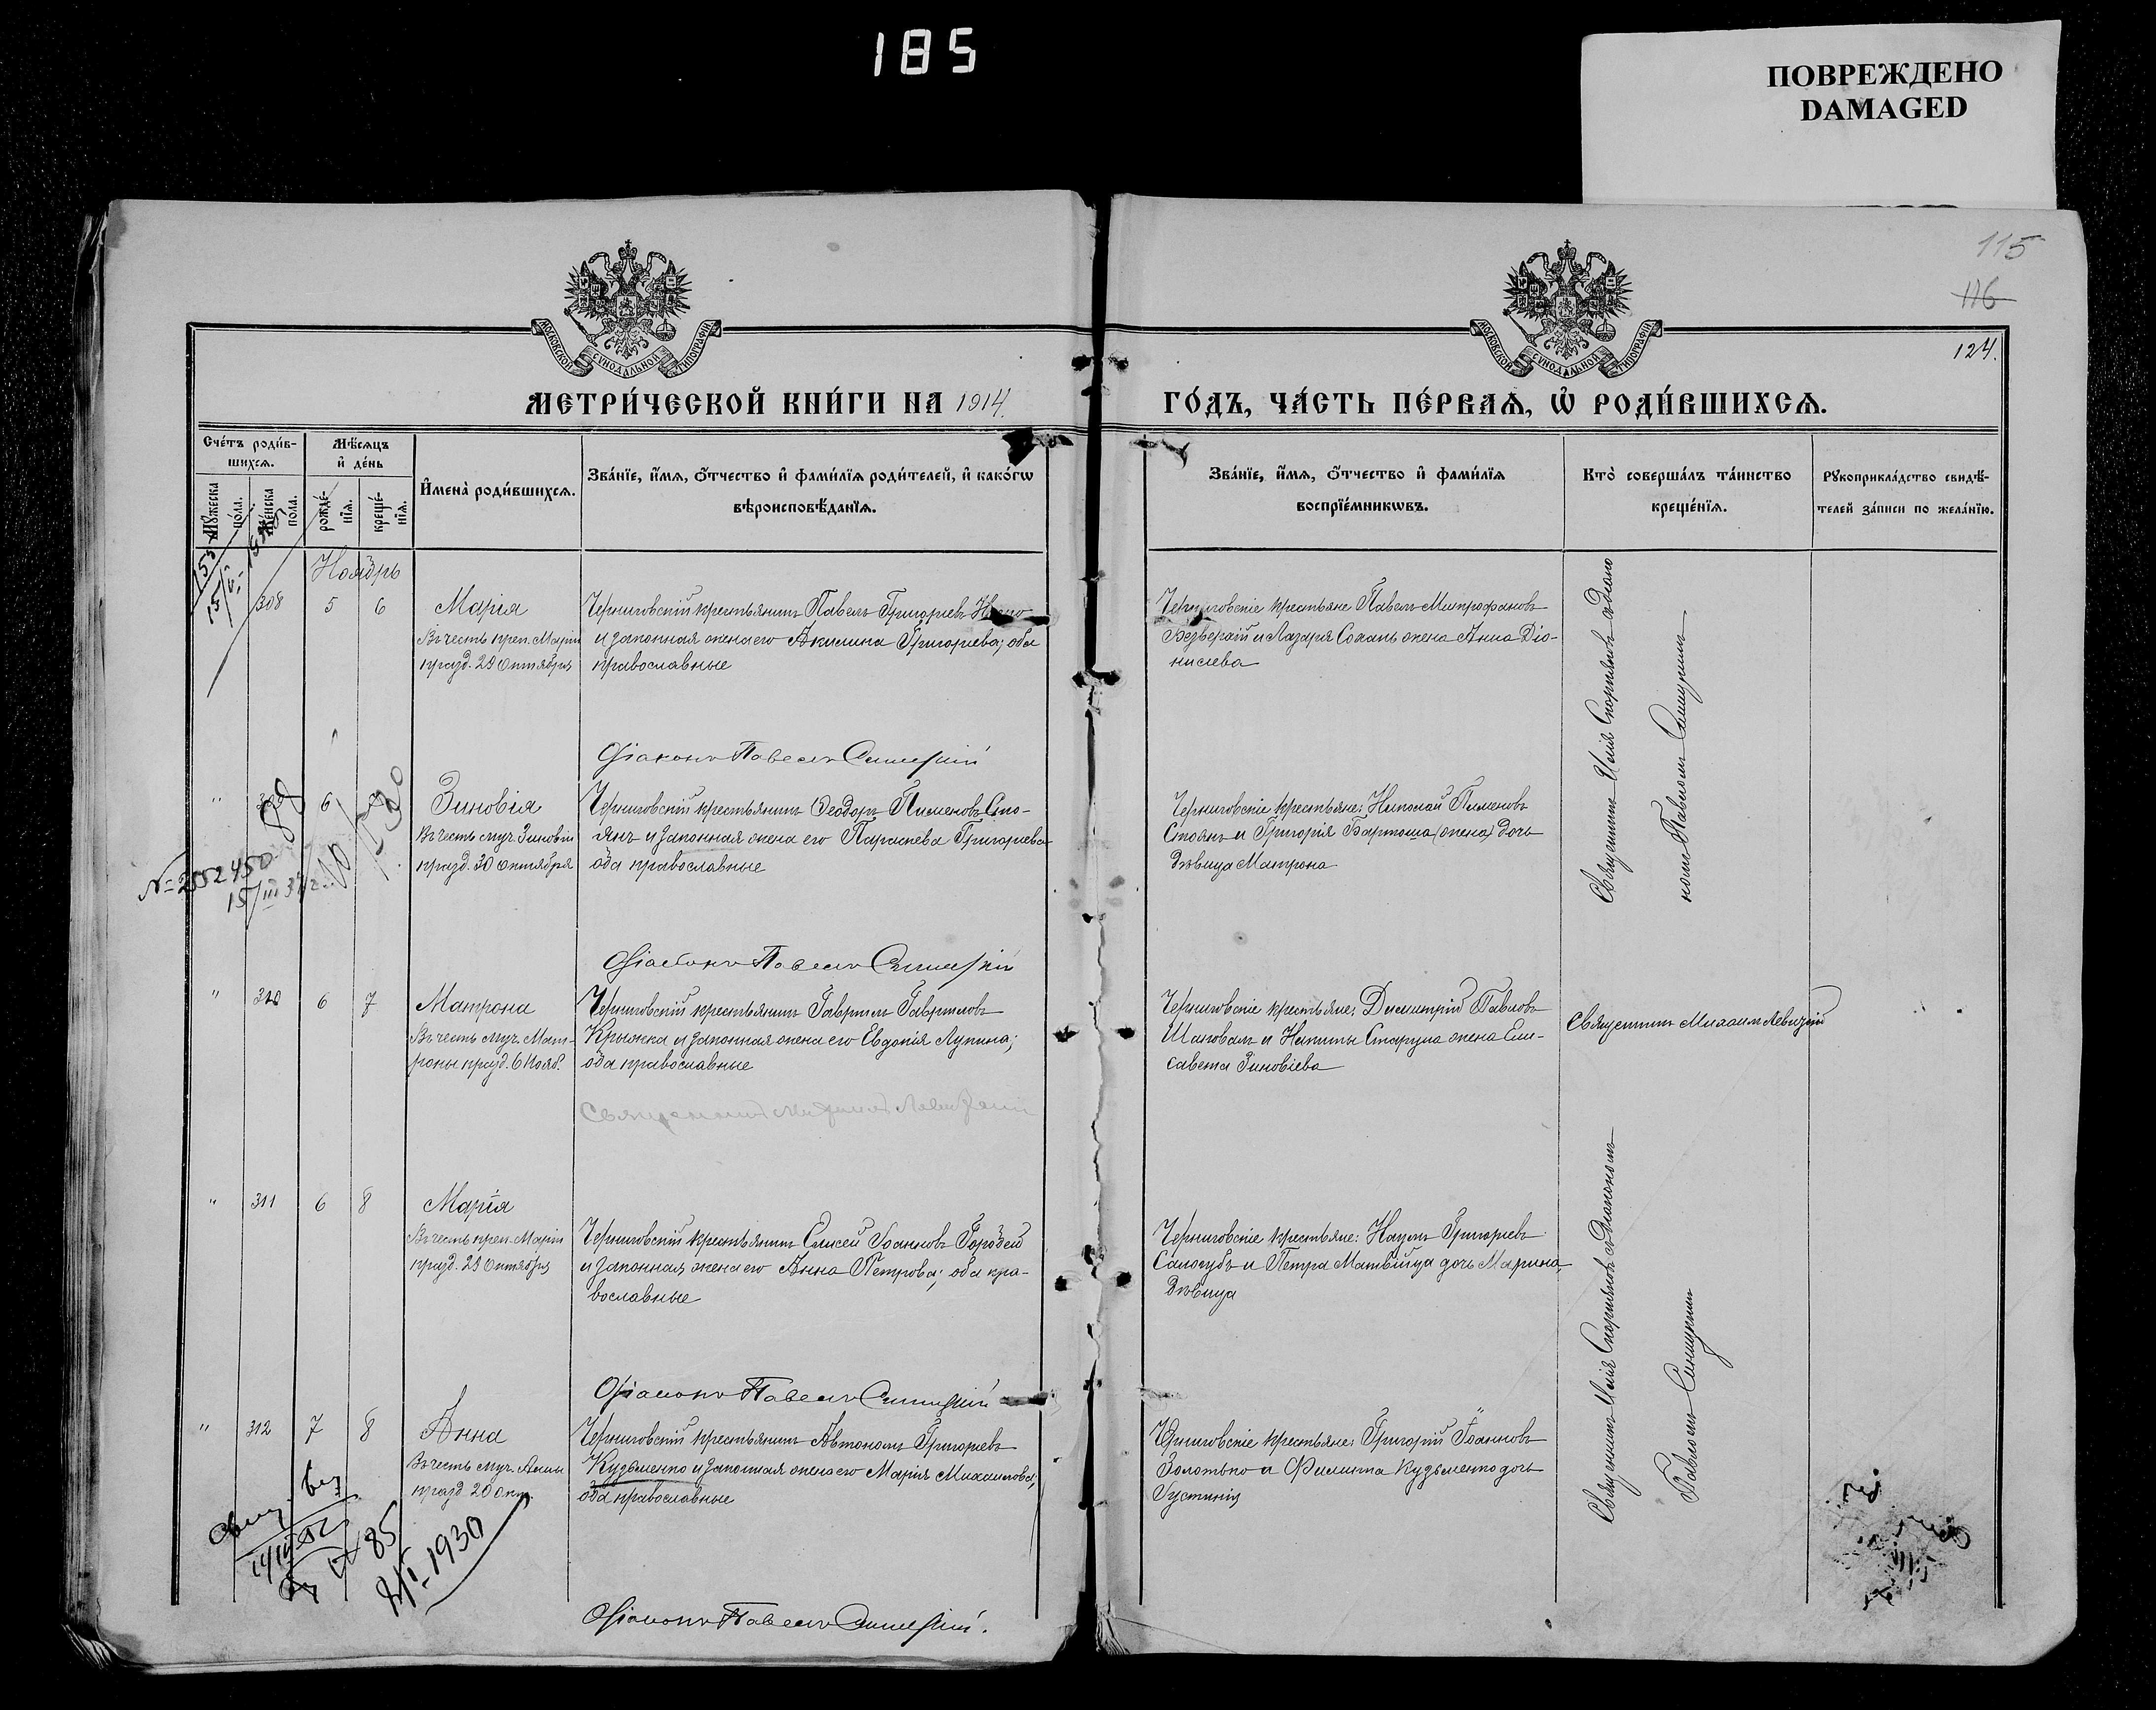 185
ПОВРЕЖДЕНО
DAMAGED
115
116
124.
МОСКОВСКОЙ СѴНОДАЛЬНОЙ ТИПОГРАФІИ
МОСКОВСКОЙ СѴНОДАЛЬНОЙ ТИПОГРАФІИ
МЕТРИ́ЧЕСКОЙ КНИ́ГИ НА 1914.
ГО́ДЪ, ЧА́СТЬ ПЕ́РВАѦ, Ѡ҆ РОДИ́ВШИХСѦ.
Сче́тъ роди́в-
шихсѧ.
Мꙋ́жеска
по́ла.
Же́нска
пола.
Мѣ́сѧцъ
и҆ де́нь
рожде́-
нїѧ.
креще́-
нїѧ.
И҆мена̀ роди́вшихсѧ.
Зва́нїе, и҆́мѧ, ѻ҆́тчество и҆ фами́лїѧ роди́телей, и҆ како́гѡ
вѣроисповѣ́данїѧ.
Зва́нїе, и҆́мѧ, ѻ҆́тчество и҆ фами́лїѧ
воспрїе́мникѡвъ.
Кто̀ соверша́лъ та́инство
креще́нїѧ.
Рꙋкоприкла́дство свидѣ́-
телей за́писи по жела́нїю.
Ноябрь
308 5 6 Марія
Въ честь преп. Маріи
празд. 29 Октября
Черниговскій крестьянинъ Павелъ Григорьевъ
и законная жена его Акилина Григорьева; оба
православные
Черниговскіе крестьяне Павелъ Митрофановъ
Безверхій и Лазаря Сокалъ жена Анна Діо-
нисіева
Священникъ Илія Скорняковъ съ діако
номъ Павломъ Синицкимъ
Діаконъ Павелъ Синицкій
" 6 Зиновія
Въ честь муч. Зиновіи
празд. 30 Октября
Черниговскій крестьянинъ Ѳеодоръ Пименовъ Сто-
янъ и законная жена его Параскева Григорьева
оба православные
Черниговскіе крестьяне: Николай Пименовъ
Стоянъ и Григорія Бартоша (жена) дочь
дѣвица Матрона
№ 2552450
15/III 37 г.
Діаконъ Павелъ Синицкій
" 310 6 7 Матрона
Въ честь муч. Мат-
роны празд. 6 Нояб.
Черниговскій крестьянинъ Гавріилъ Гавриловъ
Крыжка и законная жена его Евдокія Лукина;
оба православные
Черниговскіе крестьяне: Димитрій Павловъ
Шаповалъ и Никиты Старуха жена Ели-
савета Зиновіева
Священникъ Михаилъ Левицкій
Священникъ Михаилъ Левицкій
" 311 6 8 Марія
Въ честь преп. Маріи
празд. 29 Октября
Черниговскій крестьянинъ Елисей Іоанновъ Гордѣй
и законная жена его Анна Петрова; оба пра-
вославные
Черниговскіе крестьяне: Наумъ Григорьевъ
Салогубъ и Петра Матвійца дочь Марина
дѣвица
Священникъ Илія Скорняковъ съ Діакономъ
Павломъ Синицкимъ
Діаконъ Павелъ Синицкій
" 312 7 8 Анна
Въ честь муч. Анны
празд 20 окт.
Черниговскій крестьянинъ Автономъ Григорьевъ
Кузьменко и законная жена его Марія Михаилова;
оба православные
Черниговскіе крестьяне: Григорій Іоанновъ
Золотько и Филиппа Кузьменко дочь
Іустинія
85
1930
Діаконъ Павелъ Синицкій.